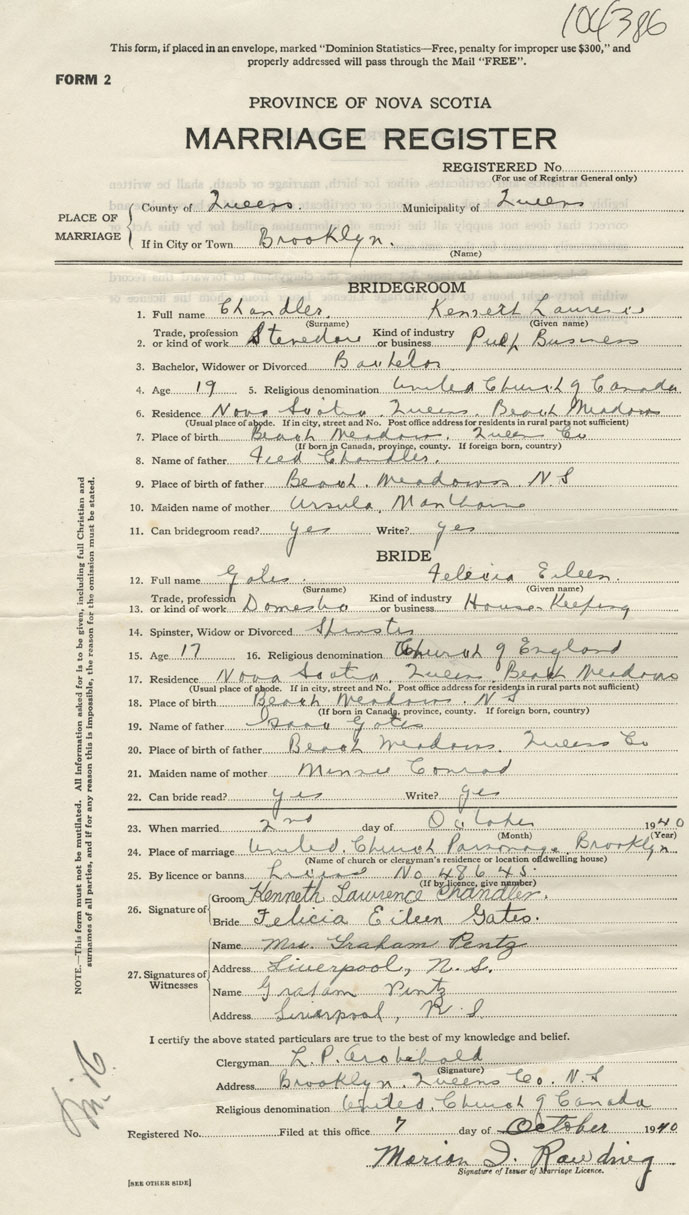 104386
This form, if placed in an envelope, marked "Dominion Statistics—Free, penalty for improper use $300," and
properly addressed will pass through the Mail "FREE".
FORM 2
PROVINCE OF NOVA SCOTIA
MARRIAGE REGISTER
REGISTERED No.
(For use of Registrar General only)
PLACE OF MARRIAGE
County of Queens. Municipality of Queens
If in City or Town Brooklyn.
(Name)
BRIDEGROOM
1. Full name Chandler. Kenneth Laurence
(Surname) (Given name)
2. Trade, profession or kind of work Stevedore Kind of industry or business Pulp Business
3. Bachelor, Widower or Divorced Bachelor
4. Age 19 5. Religious denomination United Church of Canada
6. Residence Nova Scotia Queens. Beach Meadows
(Usual place of abode. If in city, street and No. Post office address for residents in rural parts not sufficient)
7. Place of birth Beach Meadows. Queens Co
(If born in Canada, province, county. If foreign born, country)
8. Name of father Fred Chandler.
9. Place of birth of father Beach Meadows N.S
10. Maiden name of mother Ursula,
11. Can bridegroom read? yes Write? yes
BRIDE
12. Full name Gates. Felicia Eileen.
(Surname) (Given name)
13. Trade, profession or kind of work Domestic Kind of industry or business House-Keeping
14. Spinster, Widow or Divorced Spinster
15. Age 17 16. Religious denomination Church of England
17. Residence Nova Scotia. Queens. Beach Meadows
(Usual place of abode. If in city, street and No. Post office address for residents in rural parts not sufficient)
18. Place of birth Beach Meadows. N.S
(If born in Canada, province, county. If foreign born, country)
19. Name of father Isaac Gates
20. Place of birth of father Beach Meadows. Queens Co
21. Maiden name of mother Minnie Conrad
22. Can bride read? yes Write? yes
23. When married 2nd day of October 1940
(Month) (Year)
24. Place of marriage United Church Parsonage, Brooklyn
(Name of church or clergyman's residence or location of dwelling house)
25. By licence or banns License No 48645
(If by licence, give number)
26. Signature of
Groom Kenneth Lawrence Chandler.
Bride Felicia Eileen Gates.
27. Signatures of Witnesses
Name Mrs. Graham Pentz
Address Liverpool, N.S.
Name Graham Pentz
Address Liverpool, N.S
I certify the above stated particulars are true to the best of my knowledge and belief.
Clergyman L. P. Archibald
(Signature)
Address Brooklyn. Queens Co. N.S
Religious denomination United Church of Canada
Registered No. Filed at this office 7 day of October 1940
Signature of Issuer of Marriage Licence.
[SEE OTHER SIDE]
NOTE.—This form must not be mutilated. All information asked for is to be given, including full Christian and
surnames of all parties, and if for any reason this is impossible, the reason for the omission must be stated.